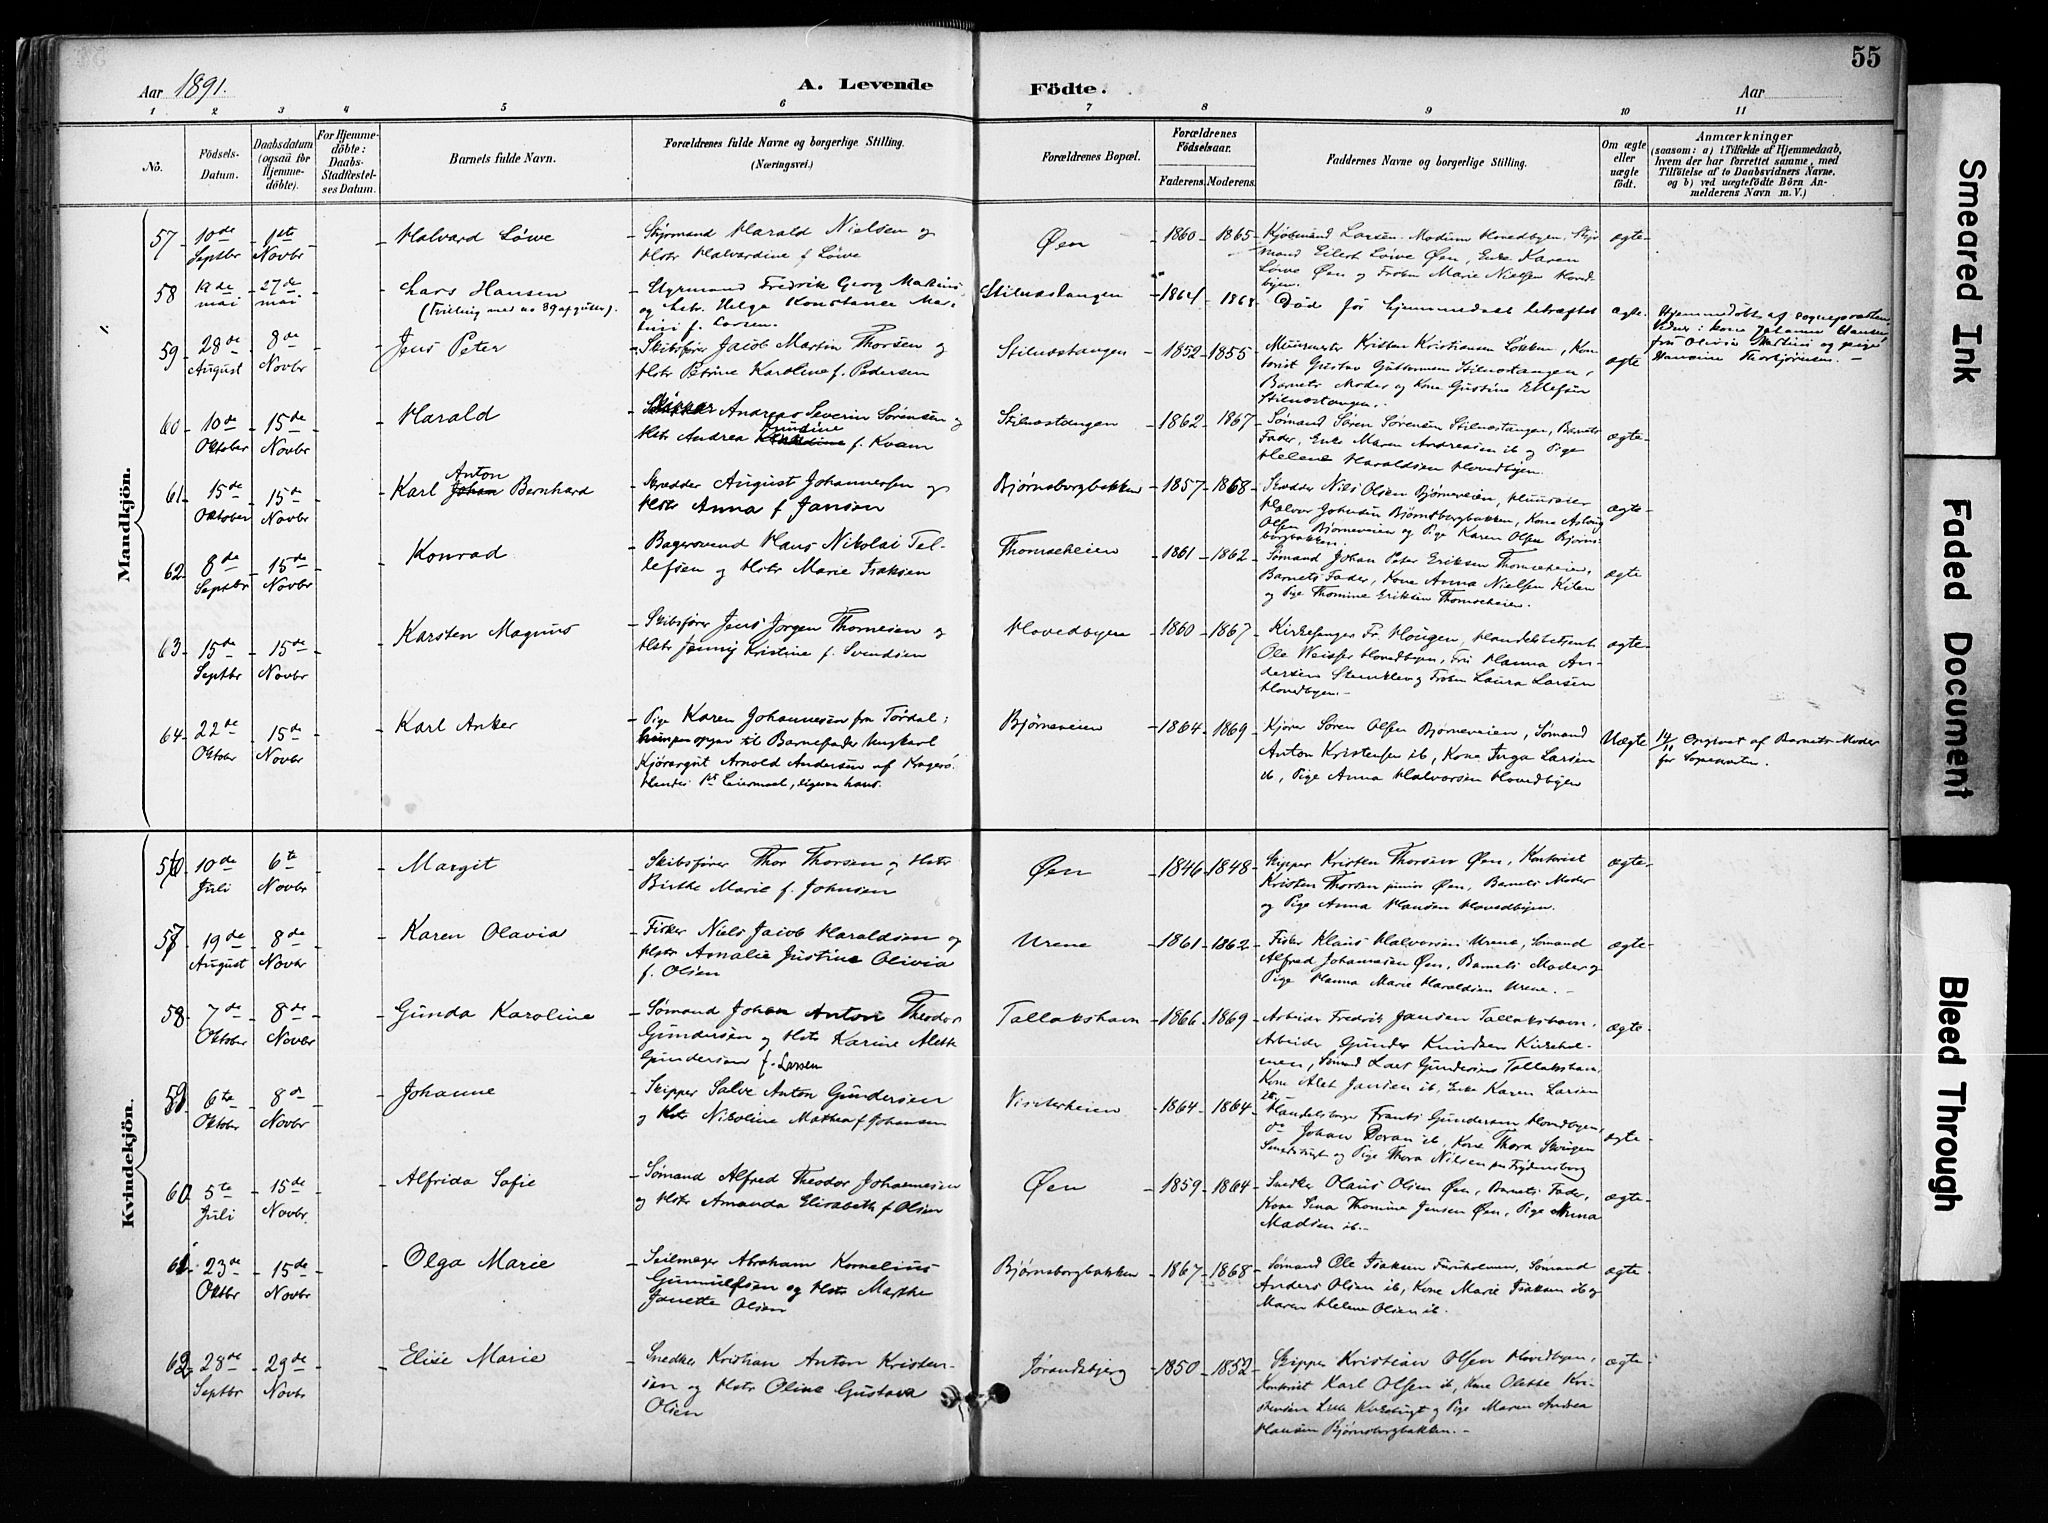 55
Aar 1891.
A. Levende
Födte.
Aar
1 2 3 4 5 6 7 8 9 10 11
No.
Födsels-
Datum.
Daabsdatum
(ogsaa for
Hjemme-
döbte).
For Hjemme-
döbte:
Daabs-
Stadfæstel-
ses Datum.
Barnets fulde Navn.
Forældrenes fulde Navne og borgerlige Stilling.
(Næringsvei.)
Forældrenes Bopæl.
Forældrenes
Födselsaar.
Faderens. Moderens.
Faddernes Navne og borgerlige Stilling.
Om ægte
eller
uægte
født.
Anmærkninger
(saasom: a) i Tilfælde af Hjemmedaab,
hvem der har forrettet samme, med
Tilföielse af to Daabsvidners Navne,
og b) ved uægtefödte Börn An-
melderens Navn m. V.)
Mandkjön.
57 10de Septbr 1ste Novbr
Halvard Løwe
Styrmand Harald Nielsen og
Hstr Halvardine f. Löwe
Øen
1860 1865
Kjøbmand Larsen Modum Hovedbyen, Styr
mand Eilert Løwe Øen, Enke Karen
Löwe Øen og Frøken Marie Nielsen Hoved-
byen.
ægte
58 19de mai 27de mai
Lars Hansen
(Tvilling med no 39 af gutter).
Styrmand Fredrik Georg Martinis
og hstr. Helga Konstanse Mar-
tini f. Larsen.
Stilnestangen
1864 1868
Död før hjemmedaab bekræftet
ægte
Hjemmedöbt af sognepresten
Vidner: kone Johanne Hansen
fru Olivia Martini og pige
Hansine Thorbjørnsen.
59 28de August 8de Novbr
Jens Peter
Skibsfører Jacob Martin Thorsen og
Hstr Petrine Karoline f. Pedersen
Stilnestangen
1852 1855
Muurmester Kristen Kristiansen Løkken, Kon-
torist Gustav Guttormsen Stilnestangen,
Barnets Moder og Kone Gustine Ellefsen
Stilnestangen.
ægte
60 10de Oktober 15de Novbr
Harald
Skipper Andreas Severin Sørensen og
Hstr Andrea Knudine f. Kvam
Stilnestangen
1862 1867
Sømand Sören Sörensen Stilnestangen, Barnets
Fader, Enke Maren Andreasen ib og Pige
Helene Haraldsen Hovedbyen.
ægte
61 15de Oktober 15de Novbr
Anton
Karl Johan Bernhard
Skrædder August Johannesen og
Hstr Anna f Jansen
Bjørnsborgbakken
1857 1868
Skrædder Nils Olsen Bjørneveien, Huuseier
Halvor Johnsen Bjørnsborgbakken, Kone Aslaug
Olsen Bjørneveien og Pige Karen Olsen Bjørns-
borgbakken.
ægte
62 8de Septbr 15de Novbr
Konrad
Bagersvend Hans Nikolai Tel-
lefsen og Hstr Marie Isaksen
Thomseheien
1861 1862
Sømand Johan Peter Eriksen Thomseheien,
Barnets Fader, Kone Anna Nielsen Kilen
og Pige Thomine Eriksen Thomseheien.
ægte
63 15de Septbr 15de Novbr
Karsten Magnus
Skibsfører Jens Jørgen Thommesen og
Hstr Jenny Kristine f. Svendsen
Hovedbyen
1860 1867
Kirkesanger Fr. Hougen, Handelsbetjent
Ole Weisser Hovedbyen, Fru Hanna An-
dersen Stenklev og Frøken Laura Larsen
Hovedbyen.
ægte
64 22de Oktober 15de Novbr
Karl Anker
Pige Karen Johannesen fra Tørdal;
hun opgav til Barnefader Ungkarl
Kjöregut Arnold Andersen af Kragerø.
Hendes 1st Leiermaal, ligesom hans.
Bjørneveien
1864 1869
Kjører Søren Olsen Bjørneveien, Sømand
Anton Kristensen ib, Kone Inga Larsen
ib, Pige Anna Halvorsen Hovedbyen
Uægte
14/11 Opgivet af Barnets Moder
for Sognepresten.
Kvindekjön.
56 10de Juli 6te Novbr
Margit
Skibsfører Thor Thorsen og Hstr
Birthe Marie f. Johnsen
Øen
1846 1848
Skipper Kristen Thorsen Øen, Kontorist
Kristen Thorsen junior Øen, Barnets Moder
og Pige Anna Hansen Hovedbyen.
ægte
57 19de August 8de Novbr
Karen Olavia
Fisker Niels Jacob Haraldsen og
Hstr Amalie Justine Olivia
f. Olsen
Urene
1861 1862
Fisker Klaus Halvorsen Urene, Sømand
Alfred Johannesen Øen, Barnets Moder og
Pige Hanna Marie Haraldsen Urene.
ægte
58 7de Oktober 8de Novbr
Gunda Karoline
Sømand Johan Anton Theodor
Gundersen og Hstr Karine Alette
Gundersen f. Larsen
Tallakshavn
1866 1869
Arbeider Fredrik Jansen Tallakshavn,
Arbeider Gunder Knudsen Kirkehol-
men, Sømand Lars Gundersen Tallakshavn,
Kone Alet Jansen ib, Enke Karen Larsen
ib.
ægte
59 6te Oktober 8de Novbr
Johanne
Skipper Salve Anton Gundersen
og Hstr Nikoline Mathea f Johansen
Visiterheien
1864 1864
Handelsborger Frants Gundersen Hovedbyen,
do Johan Doran ib, Kone Thora Skougen
Smedsbugt og Pige Thora Nilsen fra Frydensborg
ægte
60 5te Juli 15de Novbr.
Alfrida Sofie
Sømand Alfred Theodor Johannesen
og Hstr Amanda Elisabeth f. Olsen
Øen
1859 1864
Snedker Olaus Olsen Øen, Barnets Fader,
Kone Lina Thomine Jensen Øen, Pige Anna
Madsen ib.
ægte
61 23de Oktbr 15de Novbr
Olga Marie
Seilmager Abraham Kornelius
Gunnulfsen og Hstr Marthe
Janette Olsen
Bjørnsborgbakken
1867 1868
Sømand Ole Isaksen Furuholmen, Sømand
Anders Olsen ib, Kone Marie Isaksen ib og
Maren Helene Olsen ib.
ægte
62 28de Septbr 29de Novbr
Elise Marie
Snedker Kristian Anton Kristen-
sen og Hstr Oline Gustava
Olsen
Jørandsbjerg
1850 1852
Skipper Kristian Olsen Hovedbyen,
Kontorist Karl Olsen ib, Kone Olette Kri-
stensen Lille Kirkebugt og Pige Maren Andrea
Hansen Bjørnsborgbakken.
ægte
Smeared Ink
Faded Document
Bleed Through